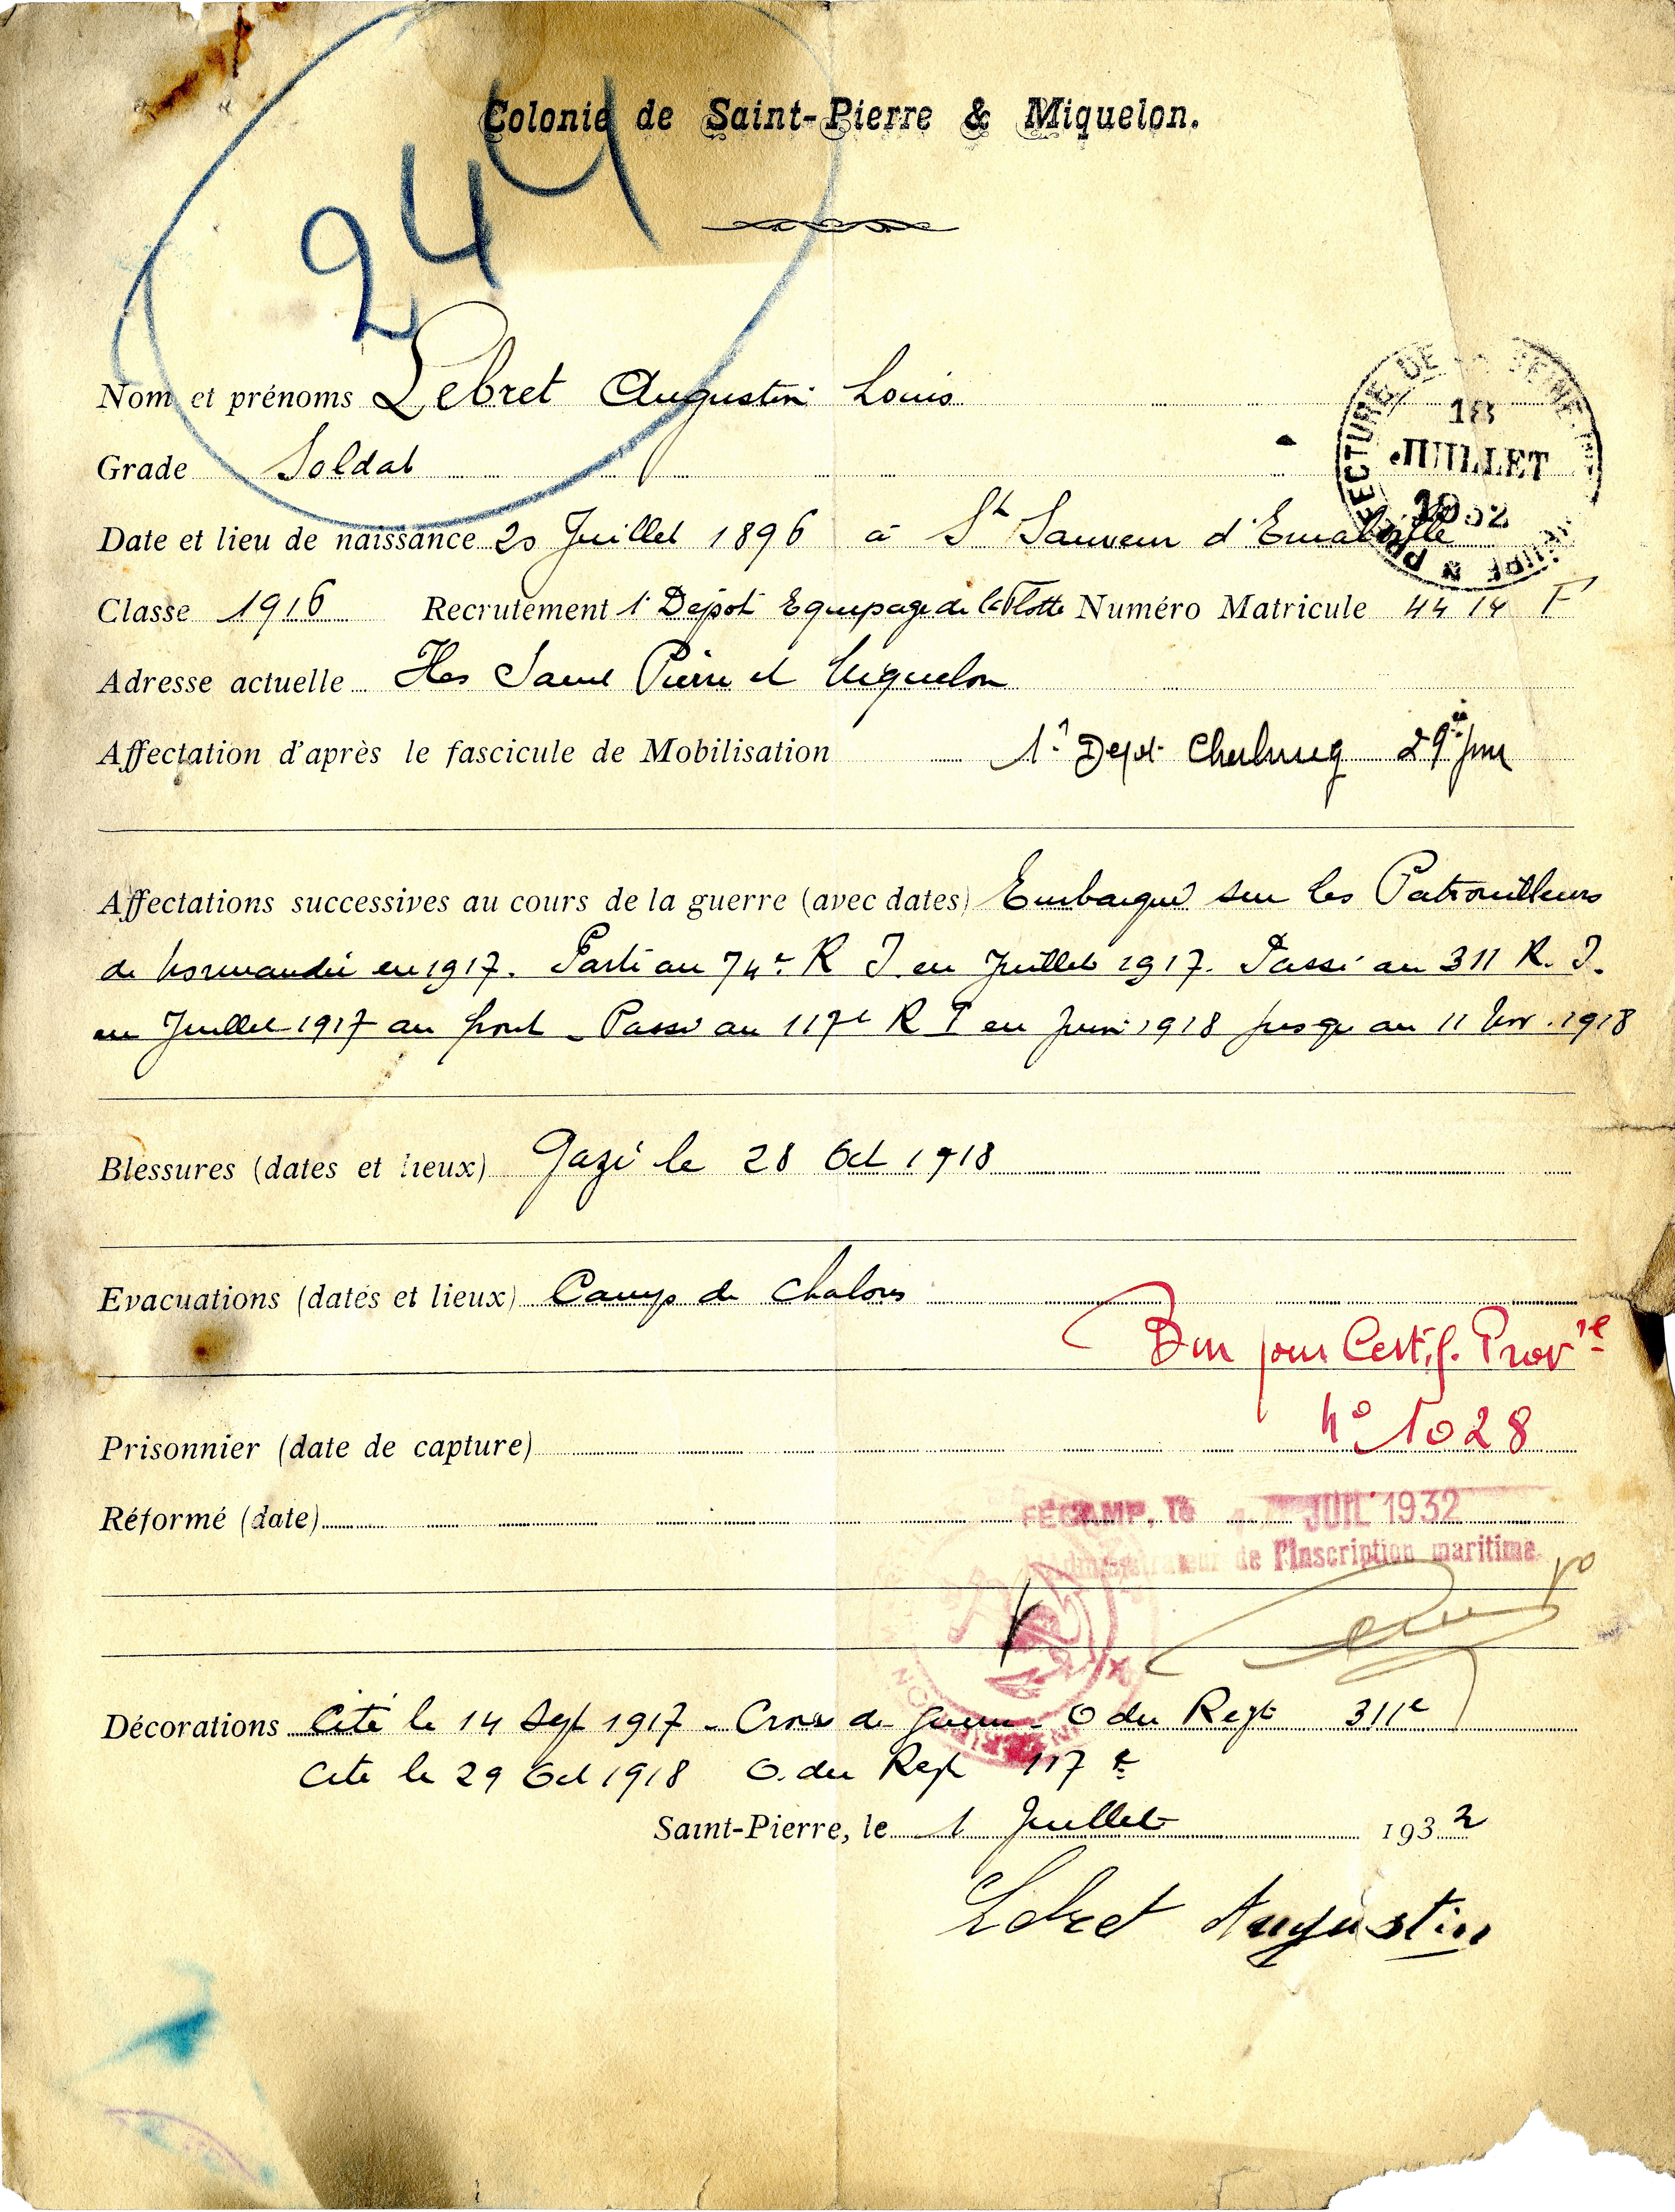 244
Colonie de Saint-Pierre & Miquelon.
Nom et prénoms Lebret Augustin Louis
Grade Soldat
PRÉFECTURE DE LA SEINE
18
JUILLET
1932
Date et lieu de naissance 20 Juillet 1896 à St Sauveur d'Emalleville
Classe 1916 Recrutement 1er Dépôt Equipage de la Flotte Numéro Matricule 44 14 F
Adresse actuelle Iles Saint Pierre et Miquelon
Affectation d'après le fascicule de Mobilisation 1er Depot Cherbourg 29e jour
Affectations successives au cours de la guerre (avec dates) Embarqué sur les Patrouilleurs
de Normandie en 1917. Parti au 74e R I. en Juillet 1917. Passé au 311 R. I.
en Juillet 1917 au front - Passé au 117e R I en Juin 1918 jusqu au 11 Nov. 1918
Blessures (dates et lieux) Gazé le 28 Oct 1918
Evacuations (dates et lieux) Camp de Chalons
Bon pour Certif. Provre
No 1028
Prisonnier (date de capture)
Réformé (date)
FÉCAMP, le JUIL 1932
Administrateur de l'Inscription maritime
Décorations Cité le 14 Sept 1917 - Croix de Guerre - O du Regt 311e
Cité le 29 Oct 1918 O. du Regt 117e
Saint-Pierre, le 1 Juillet 1932
Lebret Augustin